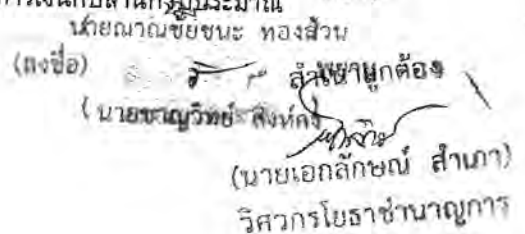 นายณาณชัยชนะ ทองส้วน
(ลงชื่อ)
สำเนาถูกต้อง
(นายชาญวิทย์
(นายเอกลักษณ์ สำเภา)
วิศวกรโยธาชำนาญการ